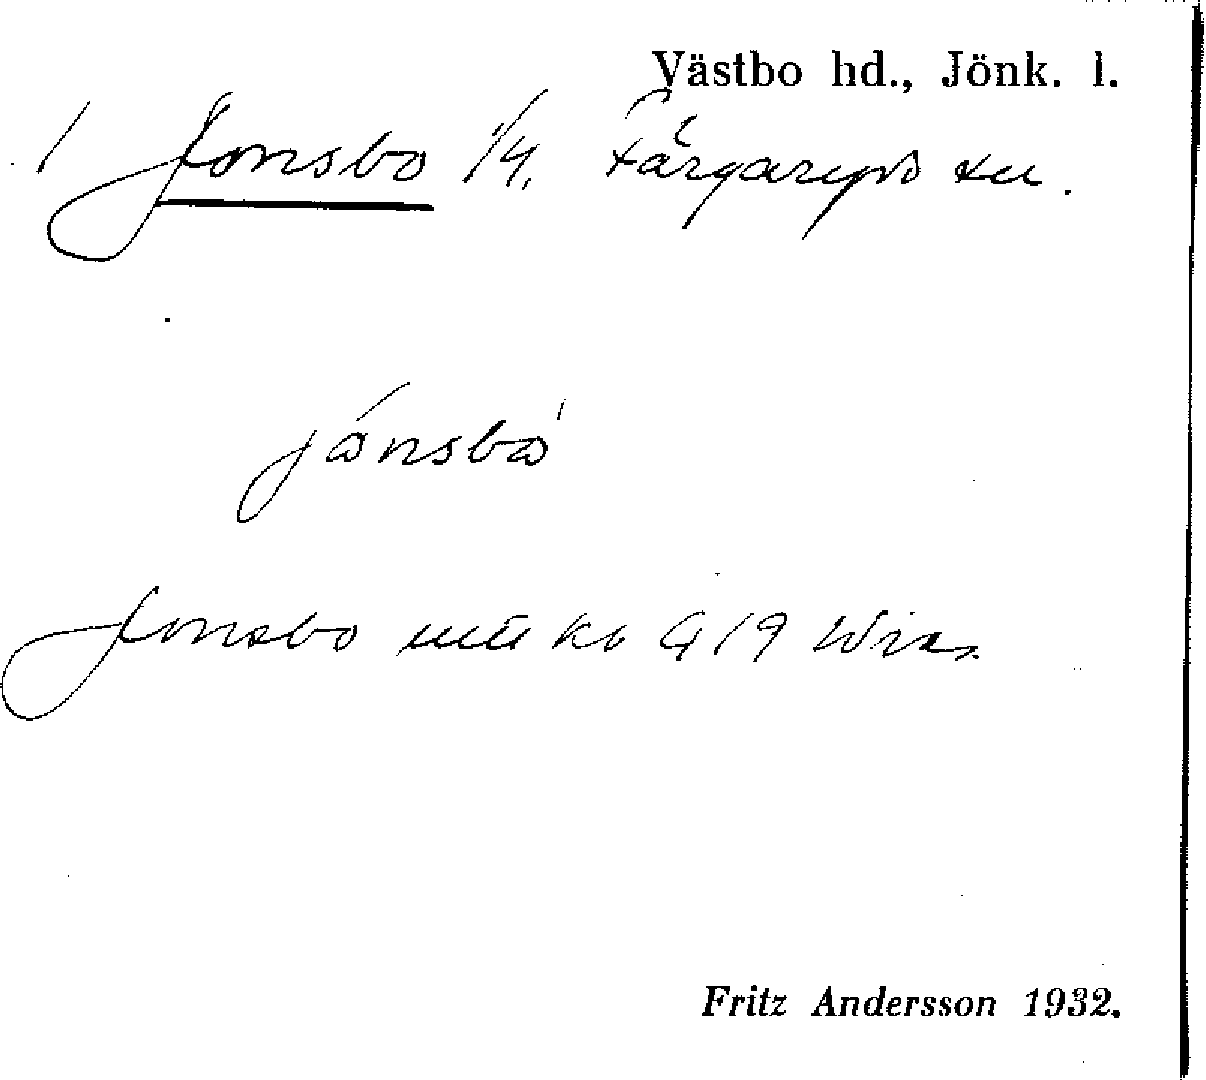 Västbo hd., Jönk. l.
/ Jonsbo 1/4. Färgaryds sn.
jónsbo'
Jonsbo
Fritz Andersson 1932.